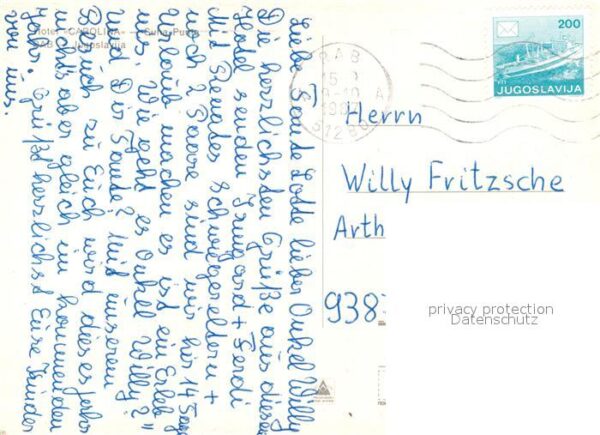 Hotel «CAROLINA» — Suha Punta
RAB — Jugoslavija
Liebe Tante Lotte lieber Onkel Willy
Die herzlichsten Grüße aus diesem
Hotel senden Irmgard + Ferdi
Mit Renates Schwiegereltern +
noch 2 Paare sind wir hir 14 Tage
Urlaub machen es ist ein Erleb
nis. Wie geht es Onkel Willy?"
und Dir Tante? Mit unserem
Besuch zu Euch wird dieses Jahr
nichts aber gleich im kommenden
Jahr. Grüßt herzlichst Eure Kinder
von uns.
RAB
1987
51280
200
JUGOSLAVIJA
Herrn
Willy Fritzsche
Arth
938
privacy protection
Datenschutz